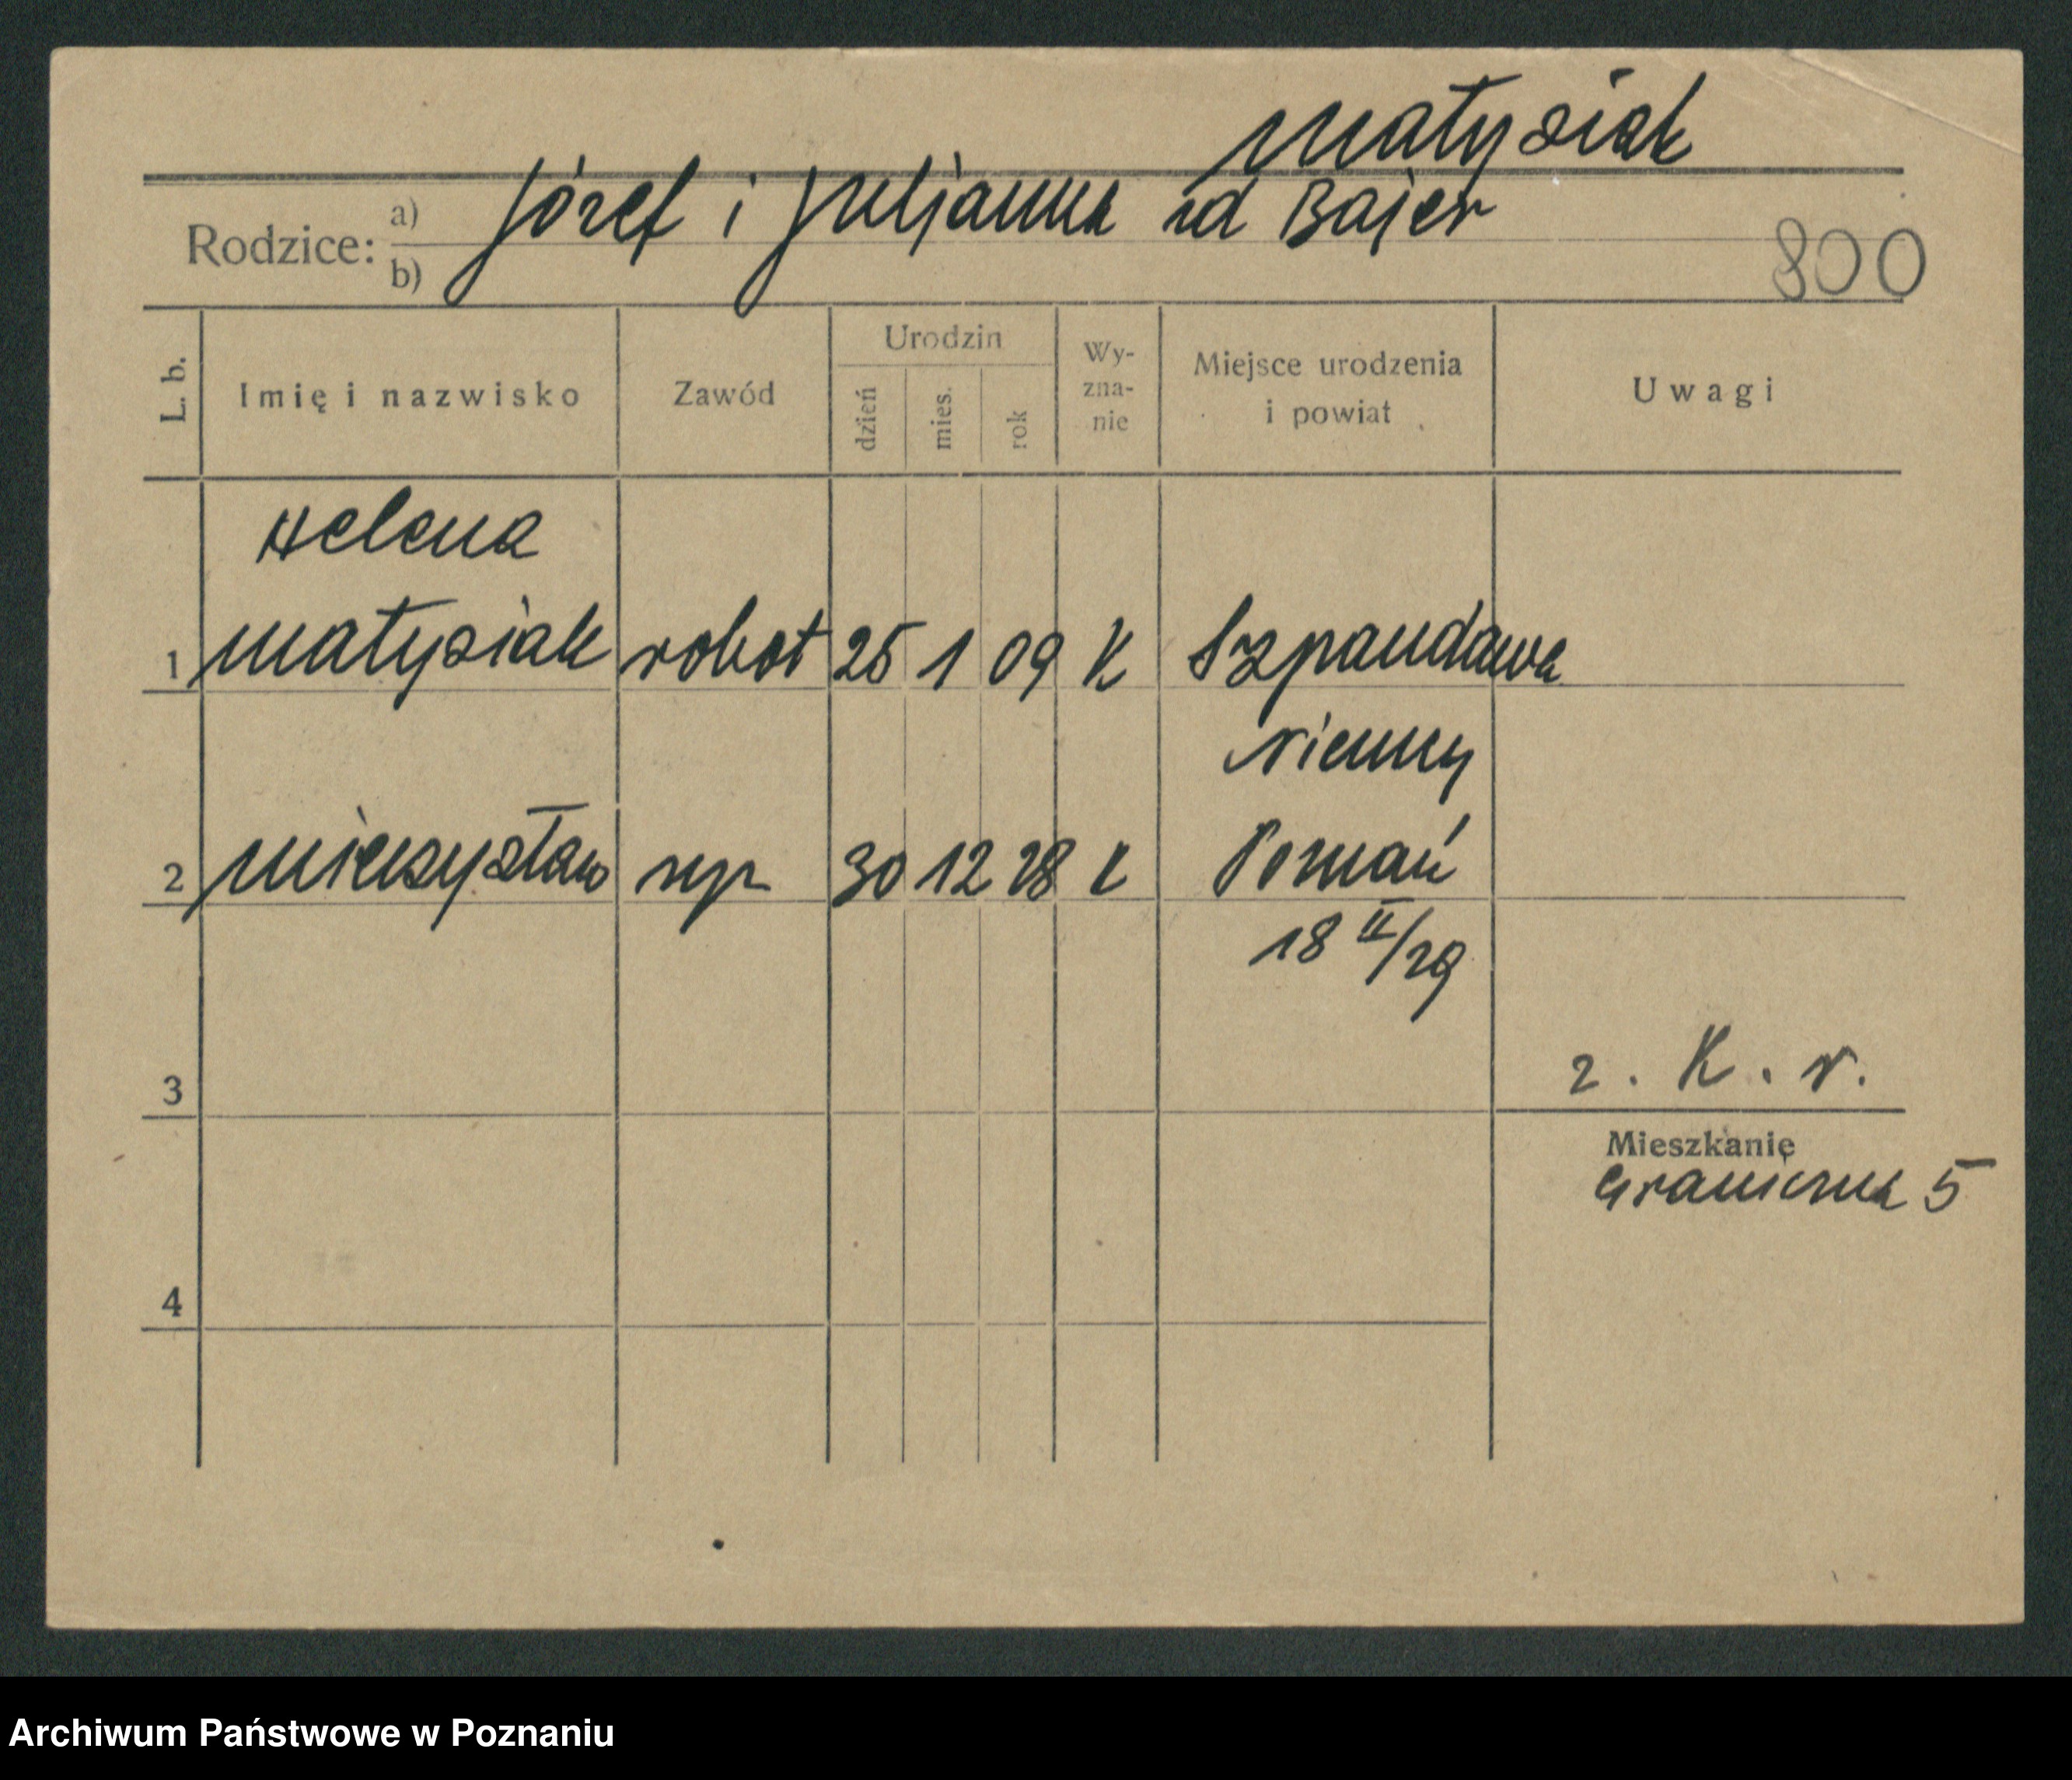 Matysiak
Rodzice: a) Józef i Juljanna zd Bajer
b)
800
L. b. Imię i nazwisko Zawód Urodzin dzień mies. rok Wy-zna-nie Miejsce urodzenia i powiat Uwagi
Helena
1 Matysiak robot 25 1 09 K Szpandawa
Niemcy
2 Mieczysław syn 30 12 28 K Poznań
18 II/29
3 2. K. r.
Mieszkanie
Graniczna 5
4
Archiwum Państwowe w Poznaniu